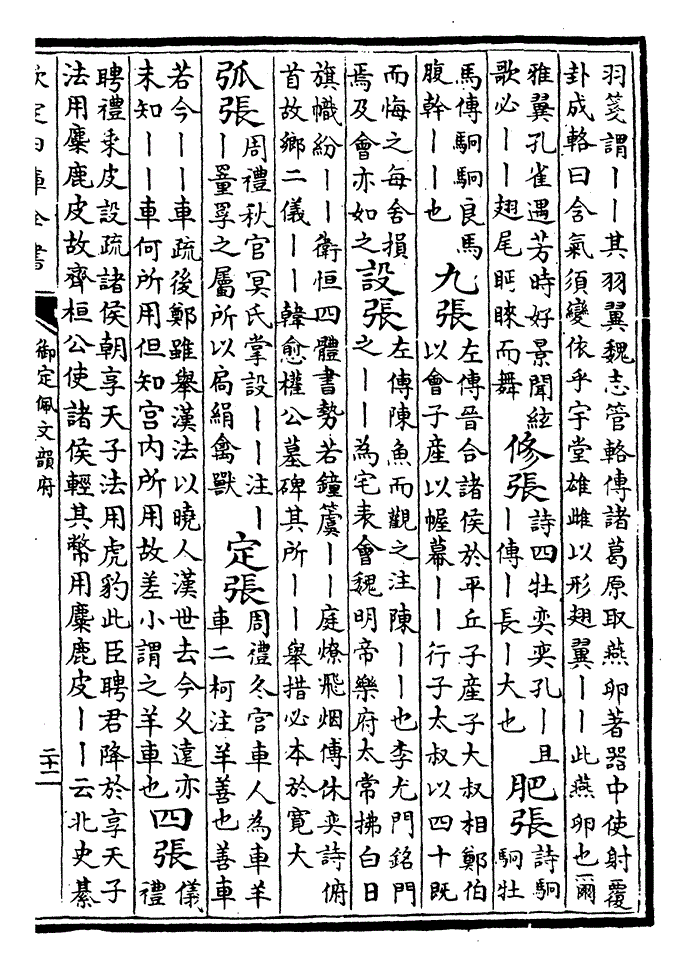 羽箋謂丨丨其羽翼魏志管輅傳諸葛原取燕卵著器中使射覆
卦成輅曰含氣須變依乎宇堂雄雌以形翅翼丨丨此燕卵也爾
雅翼孔雀遇芳時好景聞絃
歌必丨丨翅尾眄睞而舞
修張
詩四牡奕奕孔丨且
丨傳丨長丨大也
肥張
詩駉
駉牡
馬傳駉駉良馬
腹幹丨丨也
九張
左傳晉合諸侯於平丘子產子大叔相鄭伯
以會子產以幄幕丨丨行子太叔以四十既
而悔之每舍損
焉及會亦如之
設張
左傳陳魚而觀之注陳丨丨也李尤門銘門
之丨丨為宅表會魏明帝樂府太常拂白日
旗幟紛丨丨衛恒四體書勢若鐘簴丨丨庭燎飛烟傅休奕詩俯
首故鄉二儀丨丨韓愈權公墓碑其所丨丨舉措必本於寬大
弧張
周禮秋官冥氏掌設丨丨注丨
丨罿罦之屬所以扃絹禽獸
定張
周禮冬官車人為車羊
車二柯注羊善也善車
若今丨丨車疏後鄭雖舉漢法以曉人漢世去今久遠亦
未知丨丨車何所用但知宮内所用故差小謂之羊車也
四張
儀
禮
聘禮乘皮設疏諸侯朝享天子法用虎豹此臣聘君降於享天子
法用麋鹿皮故齊桓公使諸侯輕其幣用麋鹿皮丨丨云北史綦
欽定四庫全書
御定佩文韻府
二十二